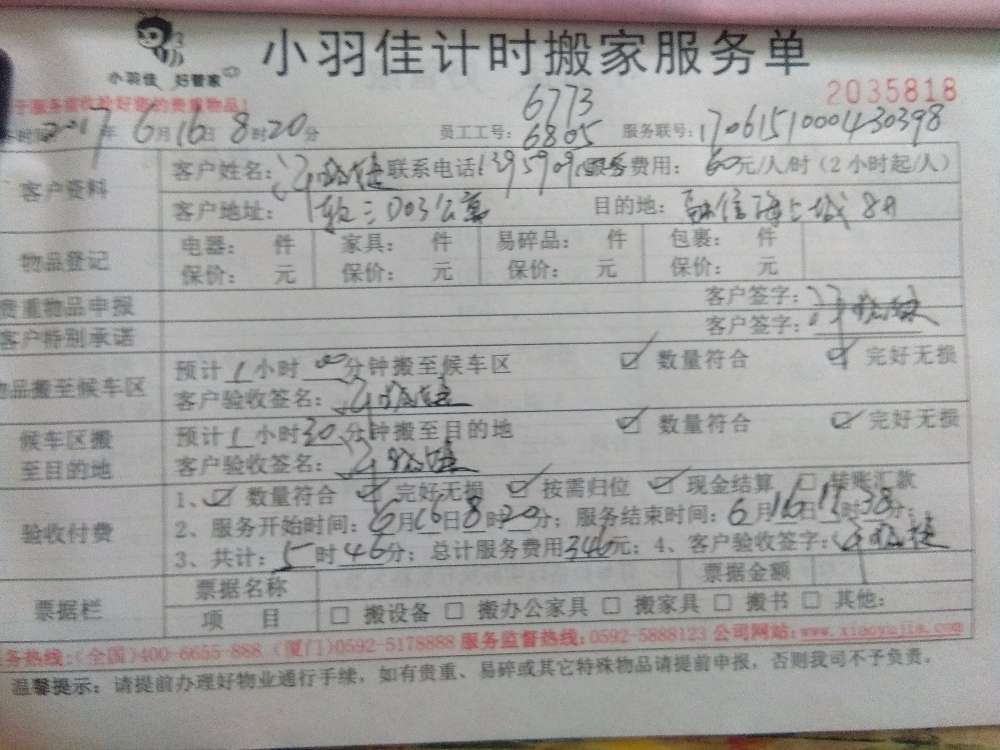 小羽佳计时搬家服务单
小羽佳 好管家
2035818
2017年6月16日8时20分 员工工号: 6773 6805 服务联号: 1706151000430398
客户资料 客户姓名: 联系电话 服务费用: 60元/人/时(2小时起/人)
客户地址: 软三D03公寓 目的地: 融信海上城8A
物品登记 电器: 件 家具: 件 易碎品: 件 包裹: 件
保价: 元 保价: 元 保价: 元 保价: 元
贵重物品申报 客户签字:
客户特别承诺 客户签字:
物品搬至候车区 预计1小时00分钟搬至候车区 ☑ 数量符合 ☑ 完好无损
客户验收签名:
候车区搬至目的地 预计1小时30分钟搬至目的地 ☑ 数量符合 ☑ 完好无损
客户验收签名:
验收付费 1、☑ 数量符合 ☑ 完好无损 ☑ 按需归位 ☑ 现金结算 ☐ 转账汇款
2、服务开始时间: 6月16日8时20分; 服务结束时间: 6月16日 时38分;
3、共计: 5时46分; 总计服务费用346元; 4、客户验收签字:
票据栏 票据名称 票据金额
项目 ☐ 搬设备 ☐ 搬办公家具 ☐ 搬家具 ☐ 搬书 ☐ 其他:
务热线:(全国)400-6655-888 (厦门)0592-5178888 服务监督热线:0592-5888123 公司网站:www.xiaoyujia.com
温馨提示: 请提前办理好物业通行手续,如有贵重、易碎或其它特殊物品请提前申报,否则我司不予负责。